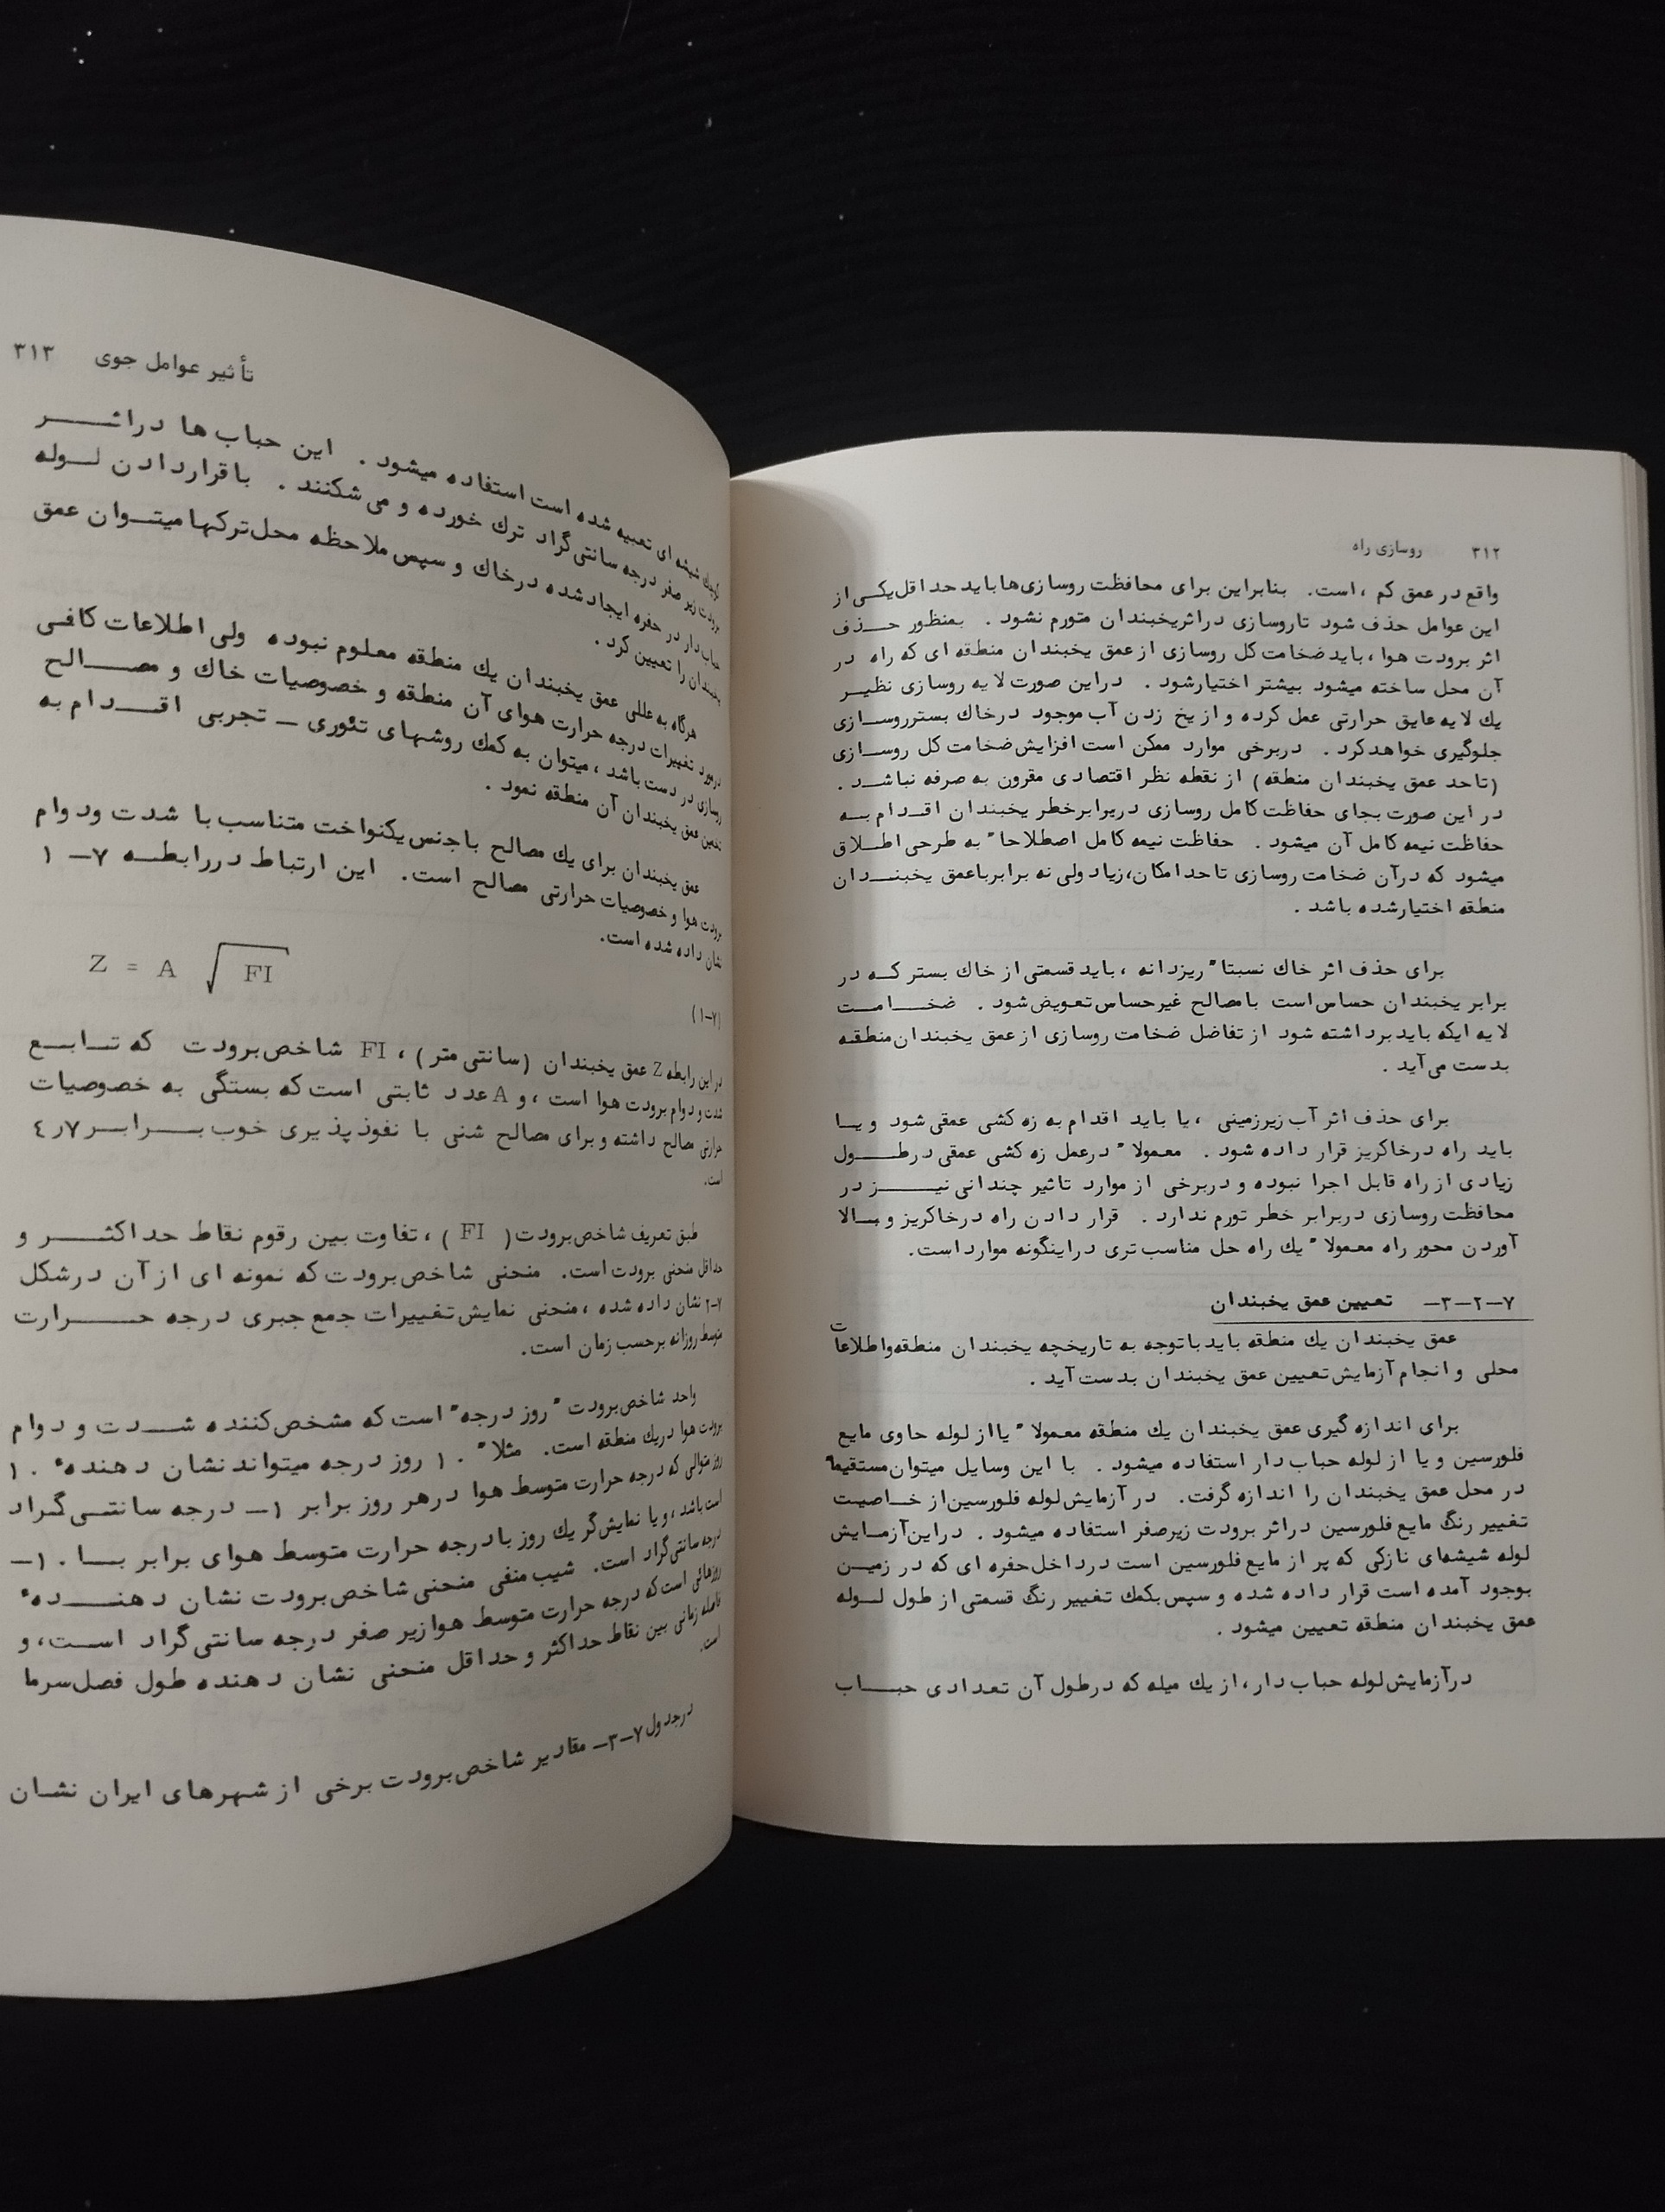 ۳۱۲ روسازی راه
واقع در عمق کم ، است. بنابراین برای محافظت روسازی‌ها باید حداقل یکی از
این عوامل حذف شود تا روسازی در اثر یخبندان متورم نشود . بمنظور حذف
اثر برودت هوا ، باید ضخامت کل روسازی از عمق یخبندان منطقه ای که راه در
آن محل ساخته میشود بیشتر اختیار شود . در این صورت لایه روسازی نظیر
یك لایه عایق حرارتی عمل کرده و از یخ زدن آب موجود در خاك بستر روسازی
جلوگیری خواهد کرد . در برخی موارد ممکن است افزایش ضخامت کل روسازی
(تا حد عمق یخبندان منطقه) از نقطه نظر اقتصادی مقرون به صرفه نباشد .
در این صورت بجای حفاظت کامل روسازی در برابر خطر یخبندان اقدام به
حفاظت نیمه کامل آن میشود . حفاظت نیمه کامل اصطلاحا" به طرحی اطلاق
میشود که در آن ضخامت روسازی تا حد امکان، زیاد ولی نه برابر با عمق یخبندان
منطقه اختیار شده باشد .
برای حذف اثر خاك نسبتا" ریزدانه ، باید قسمتی از خاك بستر که در
برابر یخبندان حساس است با مصالح غیر حساس تعویض شود . ضخامت
لایه ایکه باید برداشته شود از تفاضل ضخامت روسازی از عمق یخبندان منطقه
بدست می آید .
برای حذف اثر آب زیرزمینی ، یا باید اقدام به زه کشی عمقی شود و یا
باید راه در خاکریز قرار داده شود . معمولا" در عمل زه کشی عمقی در طول
زیادی از راه قابل اجرا نبوده و در برخی از موارد تاثیر چندانی نیز در
محافظت روسازی در برابر خطر تورم ندارد . قرار دادن راه در خاکریز و بالا
آوردن محور راه معمولا" یك راه حل مناسب تری در اینگونه موارد است.
۷–۲–۳– تعیین عمق یخبندان
عمق یخبندان یك منطقه باید با توجه به تاریخچه یخبندان منطقه و اطلاعات
محلی و انجام آزمایش تعیین عمق یخبندان بدست آید .
برای اندازه گیری عمق یخبندان یك منطقه معمولا" یا از لوله حاوی مایع
فلورسین و یا از لوله حباب دار استفاده میشود . با این وسایل میتوان مستقیما"
در محل عمق یخبندان را اندازه گرفت. در آزمایش لوله فلورسین از خاصیت
تغییر رنگ مایع فلورسین در اثر برودت زیر صفر استفاده میشود . در این آزمایش
لوله شیشه‌ای نازکی که پر از مایع فلورسین است در داخل حفره ای که در زمین
بوجود آمده است قرار داده شده و سپس بکمك تغییر رنگ قسمتی از طول لوله
عمق یخبندان منطقه تعیین میشود .
در آزمایش لوله حباب دار ، از یك میله که در طول آن تعدادی حباب
تأثیر عوامل جوی ۳۱۳
کوچك شیشه ای تعبیه شده است استفاده میشود . این حباب ها در اثر
برودت زیر صفر درجه سانتی گراد ترك خورده و می شکنند . با قرار دادن لوله
حباب دار در حفره ایجاد شده در خاك و سپس ملاحظه محل ترکها میتوان عمق
یخبندان را تعیین کرد .
هرگاه به عللی عمق یخبندان یك منطقه معلوم نبوده ولی اطلاعات کافی
در مورد تغییرات درجه حرارت هوای آن منطقه و خصوصیات خاك و مصالح
روسازی در دست باشد ، میتوان به کمك روشهای تئوری – تجربی اقدام به
تخمین عمق یخبندان آن منطقه نمود .
عمق یخبندان برای یك مصالح با جنس یکنواخت متناسب با شدت و دوام
برودت هوا و خصوصیات حرارتی مصالح است. این ارتباط در رابطه ۷–۱
نشان داده شده است.
Z = A √FI
(۷–۱)
در این رابطه Z عمق یخبندان (سانتی متر) ، FI شاخص برودت که تابع
شدت و دوام برودت هوا است ، و A عدد ثابتی است که بستگی به خصوصیات
حرارتی مصالح داشته و برای مصالح شنی با نفوذپذیری خوب برابر ۴٫۷
است.
طبق تعریف شاخص برودت ( FI ) ، تفاوت بین رقوم نقاط حداکثر و
حداقل منحنی برودت است. منحنی شاخص برودت که نمونه ای از آن در شکل
۷–۲ نشان داده شده ، منحنی نمایش تغییرات جمع جبری درجه حرارت
متوسط روزانه بر حسب زمان است.
واحد شاخص برودت "روز درجه" است که مشخص کننده شدت و دوام
برودت هوا در یك منطقه است. مثلا" ۱۰ روز درجه میتواند نشان دهندهٴ ۱۰
روز متوالی که درجه حرارت متوسط هوا در هر روز برابر ۱– درجه سانتی گراد
است باشد ، و یا نمایش گر یك روز با درجه حرارت متوسط هوای برابر با ۱۰–
درجه سانتی گراد است. شیب منفی منحنی شاخص برودت نشان دهندهٴ
روزهائی است که درجه حرارت متوسط هوا زیر صفر درجه سانتی گراد است، و
فاصله زمانی بین نقاط حداکثر و حداقل منحنی نشان دهنده طول فصل سرما
است.
در جدول ۷–۳– مقادیر شاخص برودت برخی از شهرهای ایران نشان